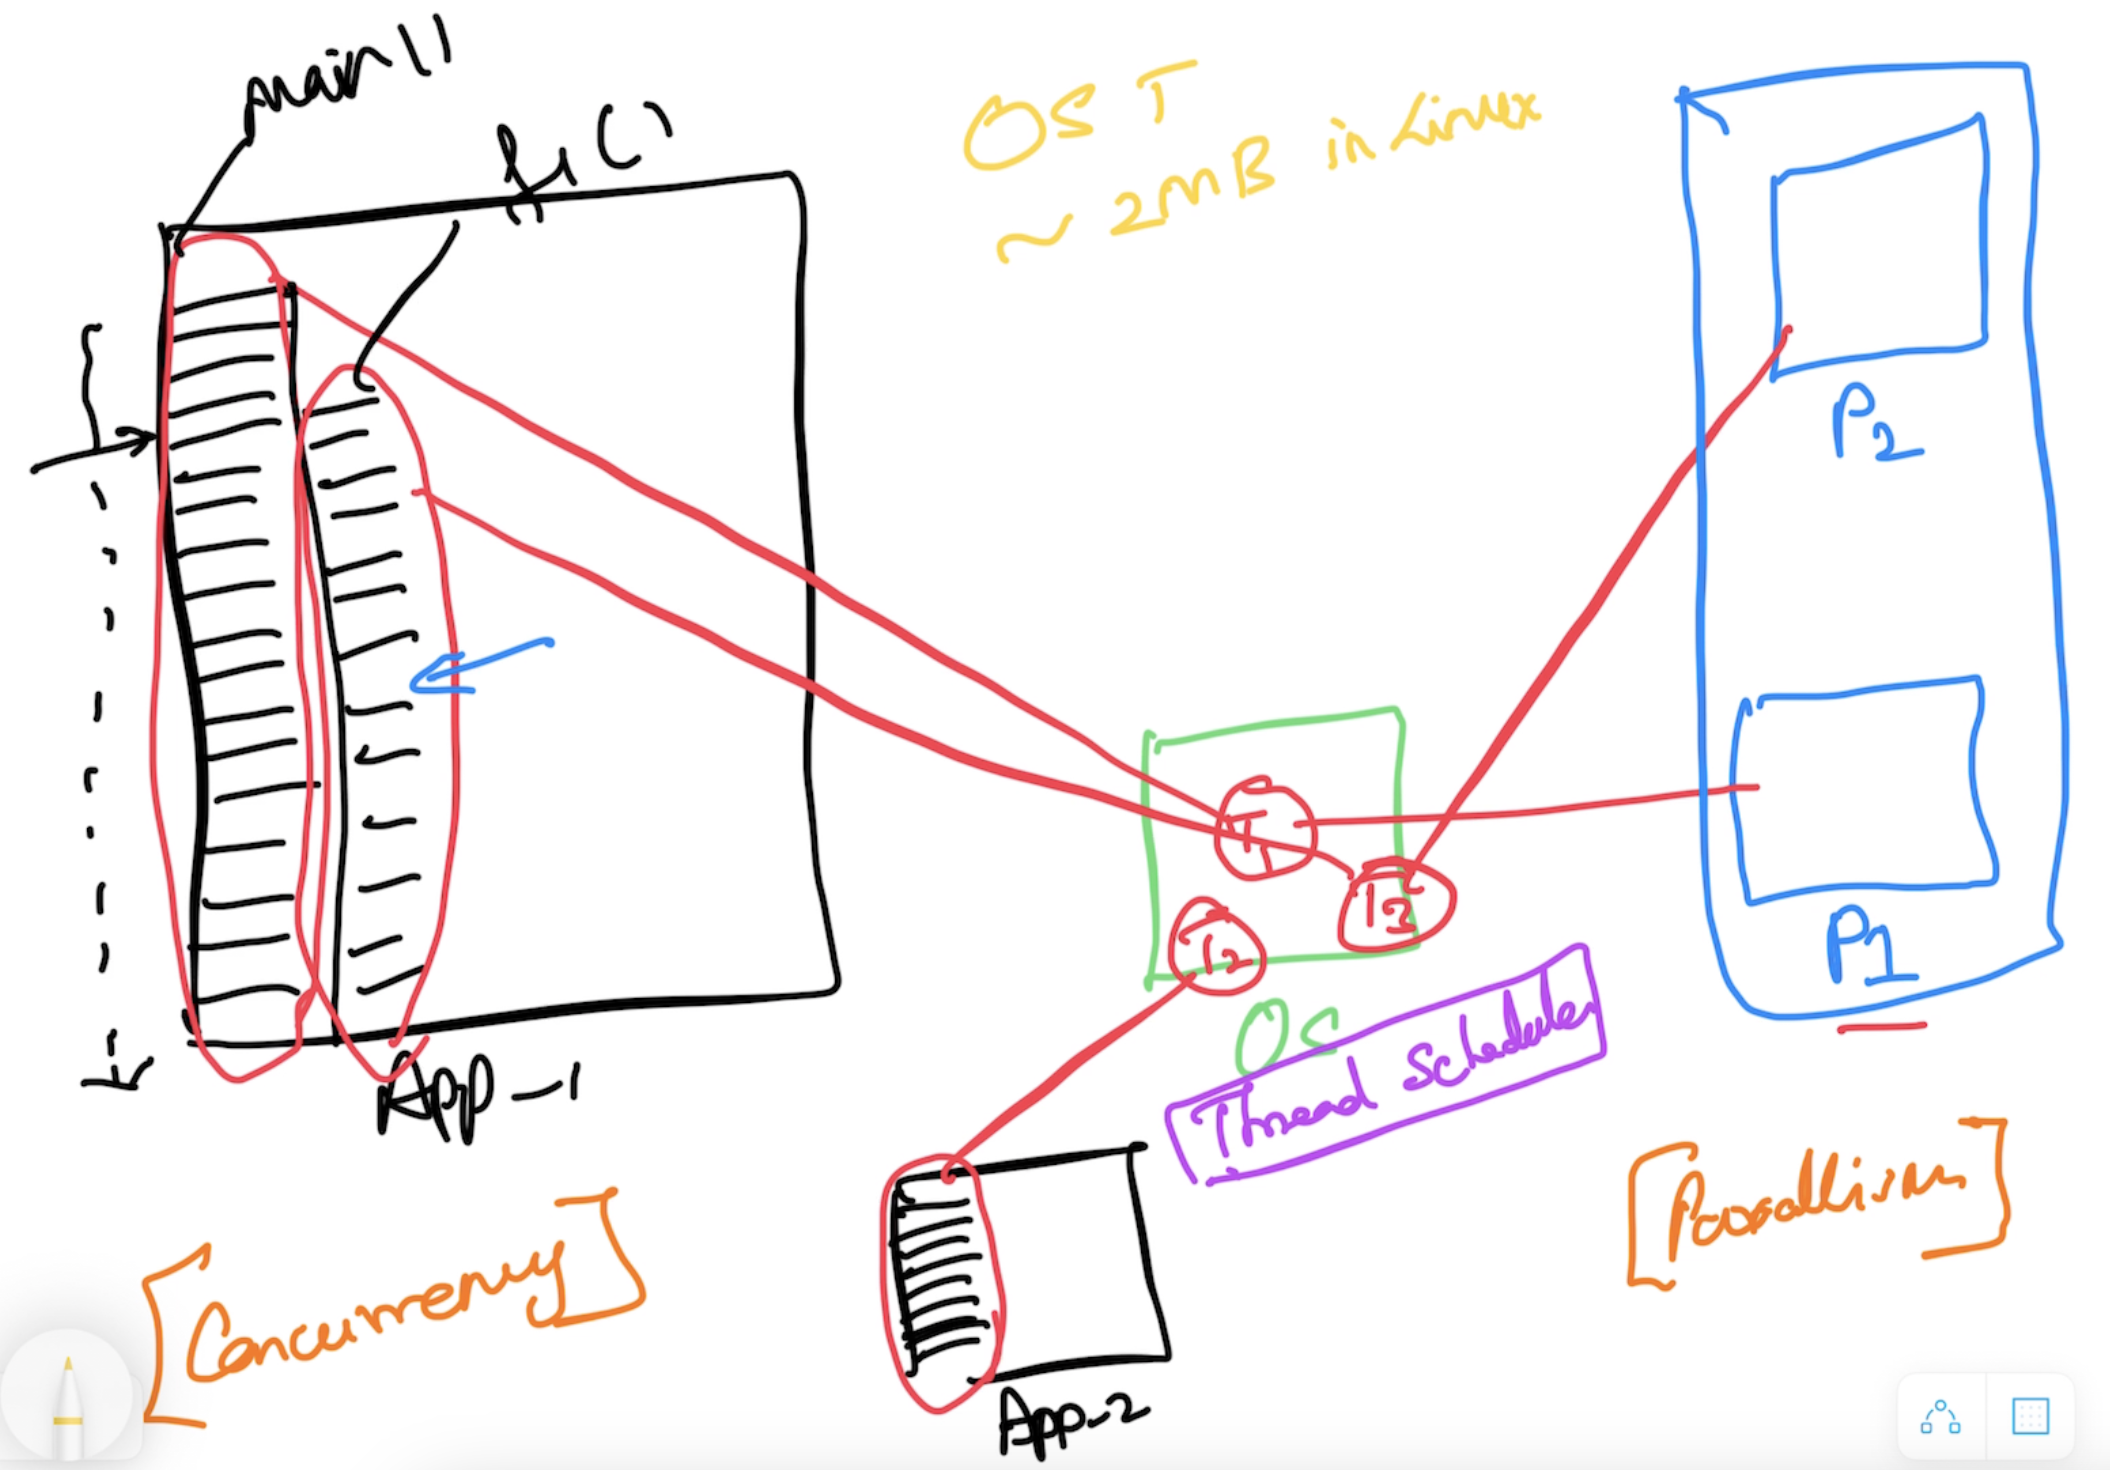 main()
f1()
OST
~ 2MB in Linux
P2
T1
T3
T2
P1
OS
Thread Scheduler
App-1
[Concurrency]
[Parallism]
App-2